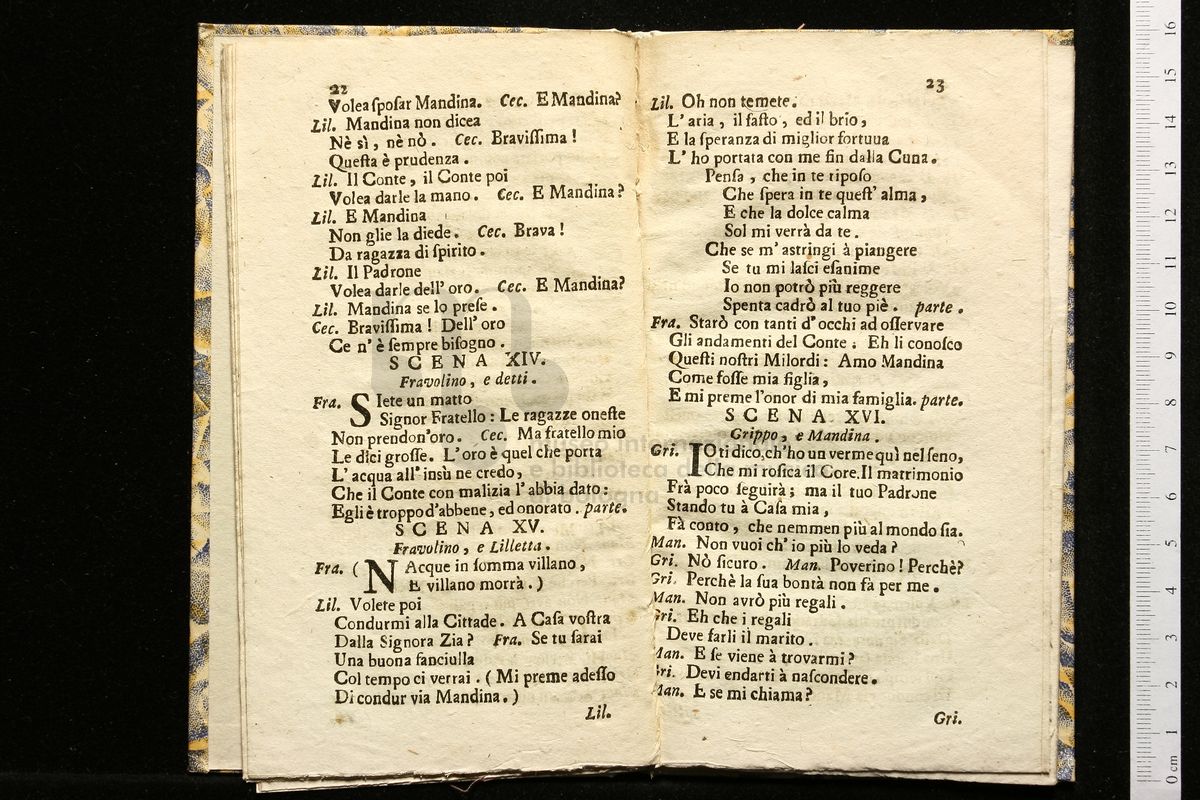 22
Volea sposar Mandina. Cec. E Mandina?
Lil. Mandina non dicea
Nè sì, nè nò. Cec. Bravissima!
Questa è prudenza.
Lil. Il Conte, il Conte poi
Volea darle la mano. Cec. E Mandina?
Lil. E Mandina
Non glie la diede. Cec. Brava!
Da ragazza di spirito.
Lil. Il Padrone
Volea darle dell' oro. Cec. E Mandina?
Lil. Mandina se lo prese.
Cec. Bravissima! Dell' oro
Ce n' è sempre bisogno.
SCENA XIV.
Fravolino, e detti.
Fra. SIete un matto
Signor Fratello: Le ragazze oneste
Non prendon'oro. Cec. Ma fratello mio
Le dici grosse. L'oro è quel che porta
L' acqua all' insù ne credo,
Che il Conte con malizia l' abbia dato:
Egli è troppo d'abbene, ed onorato. parte.
SCENA XV.
Fravolino, e Lilletta.
Fra. (NAcque in somma villano,
E villano morrà.)
Lil. Volete poi
Condurmi alla Cittade. A Casa vostra
Dalla Signora Zia? Fra. Se tu sarai
Una buona fanciulla
Col tempo ci verrai. (Mi preme adesso
Di condur via Mandina.)
Lil.
23
Lil. Oh non temete.
L' aria, il fasto, ed il brio,
E la speranza di miglior fortuua
L' ho portata con me fin dalla Cuna.
Pensa, che in te riposo
Che spera in te quest' alma,
E che la dolce calma
Sol mi verrà da te.
Che se m' astringi à piangere
Se tu mi lasci esanime
Io non potrò più reggere
Spenta cadrò al tuo piè. parte.
Fra. Starò con tanti d' occhi ad osservare
Gli andamenti del Conte: Eh li conosco
Questi nostri Milordi: Amo Mandina
Come fosse mia figlia,
E mi preme l'onor di mia famiglia. parte.
SCENA XVI.
Grippo, e Mandina.
Gri. IO ti dico, ch'ho un verme quì nel seno,
Che mi rosica il Core. Il matrimonio
Frà poco seguirà; ma il tuo Padrone
Stando tu à Casa mia,
Fà conto, che nemmen più al mondo sia.
Man. Non vuoi ch' io più lo veda?
Gri. Nò sicuro. Man. Poverino! Perchè?
Gri. Perchè la sua bontà non fà per me.
Man. Non avrò più regali.
Gri. Eh che i regali
Deve farli il marito.
Man. E se viene à trovarmi?
Gri. Devi endarti à nascondere.
Man. E se mi chiama?
Gri.